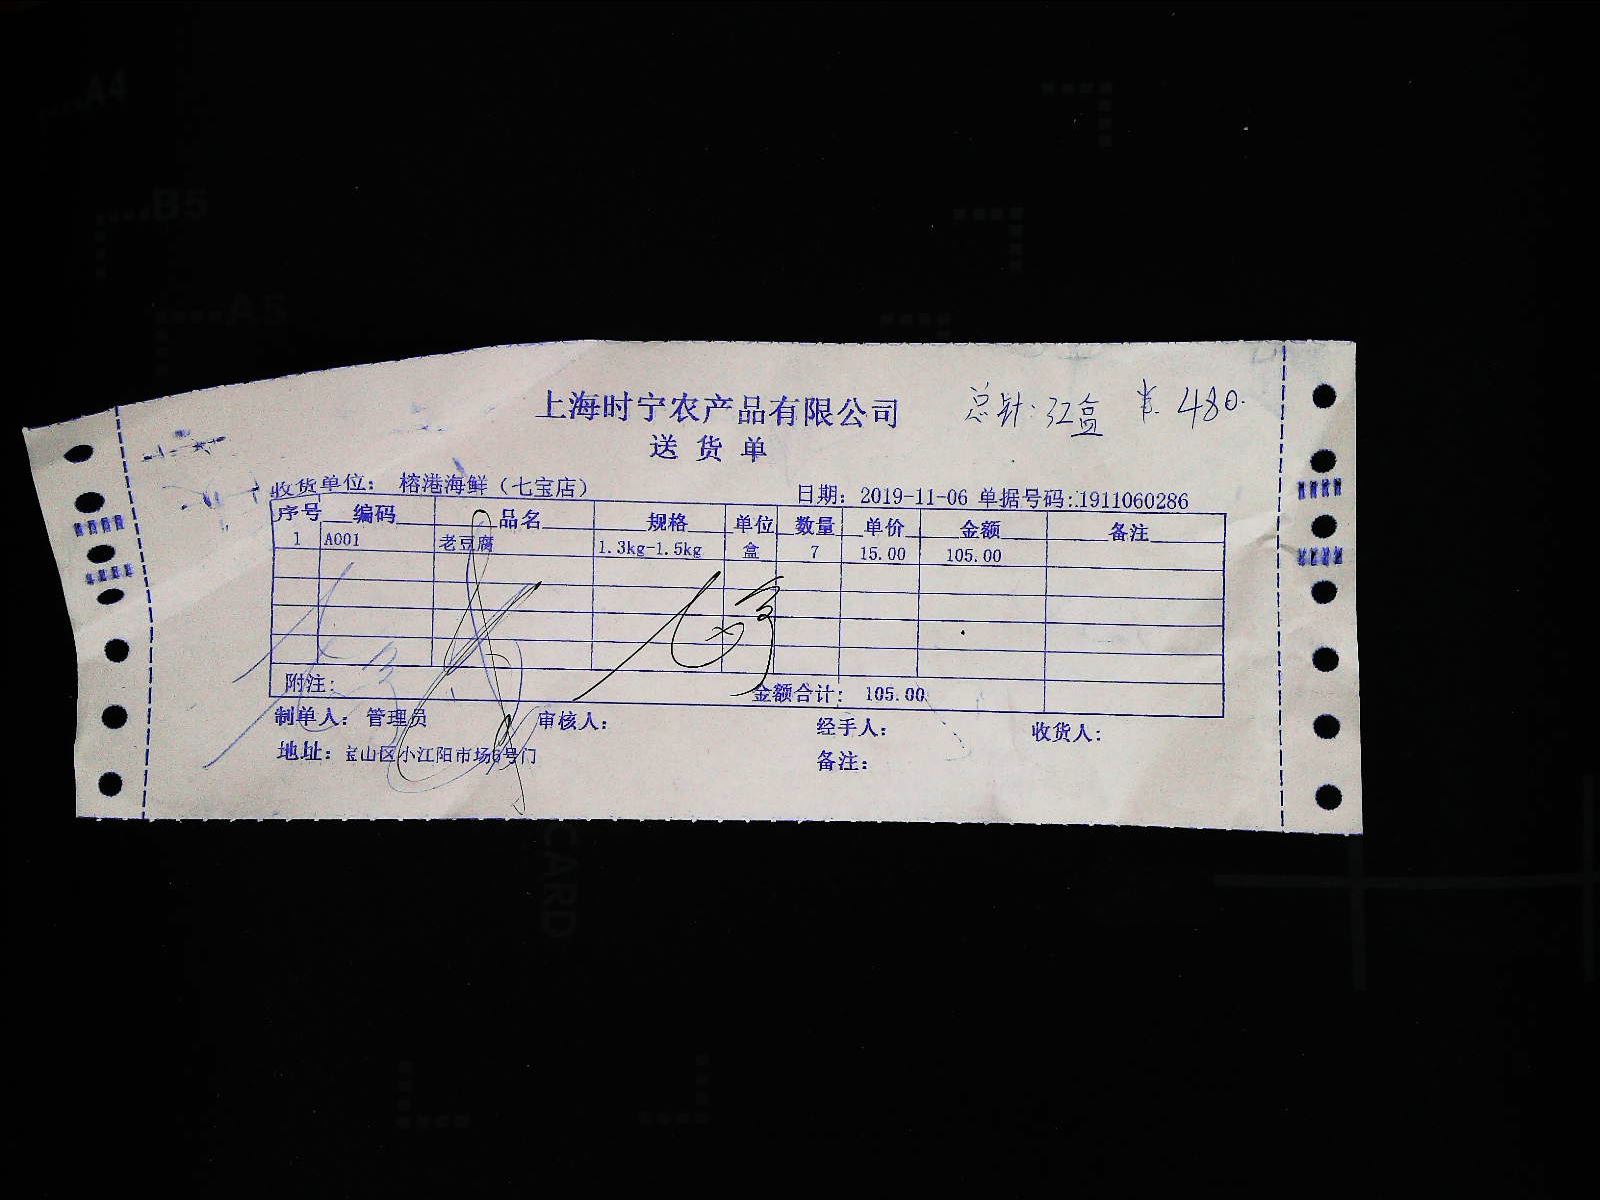 A4
B5
A5
上海时宁农产品有限公司
总计:32盒 ¥480.
送货单
收货单位: 榕港海鲜(七宝店) 日期: 2019-11-06 单据号码:1911060286
序号 编码 品名 规格 单位 数量 单价 金额 备注
1 A001 老豆腐 1.3kg-1.5kg 盒 7 15.00 105.00
附注: 金额合计: 105.00
制单人: 管理员 审核人: 经手人: 收货人:
地址: 宝山区小江阳市场6号门 备注:
CARD